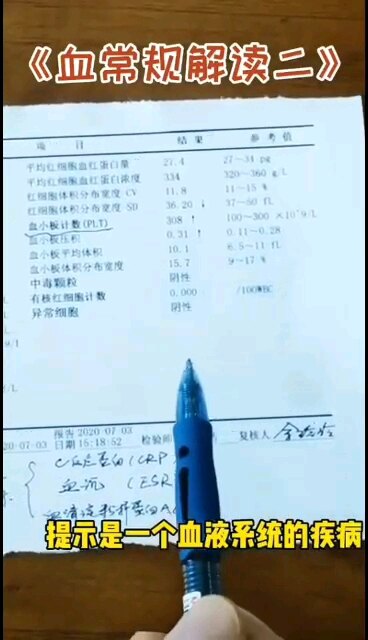 《血常规解读二》
项 目 结 果 参 考 值
平均红细胞血红蛋白量 27.4 27~34 pg
平均红细胞血红蛋白浓度 334 320~360 g/L
红细胞体积分布宽度 CV 11.8 11~15 %
红细胞体积分布宽度 SD 36.20 ↓ 37~50 fL
血小板计数(PLT) 308 ↑ 100~300 ×10^9/L
血小板压积 0.31 ↑ 0.11~0.28
血小板平均体积 10.1 6.5~11 fL
血小板体积分布宽度 15.7 9~17 %
中毒颗粒 阴性
有核红细胞计数 0.000 /100WBC
异常细胞 阴性
报告 2020-07-03
20-07-03 日期 15:18:52 检验师 复核人
C反应蛋白(CRP
血沉 (ESR
血清淀粉样蛋白A(
提示是一个血液系统的疾病